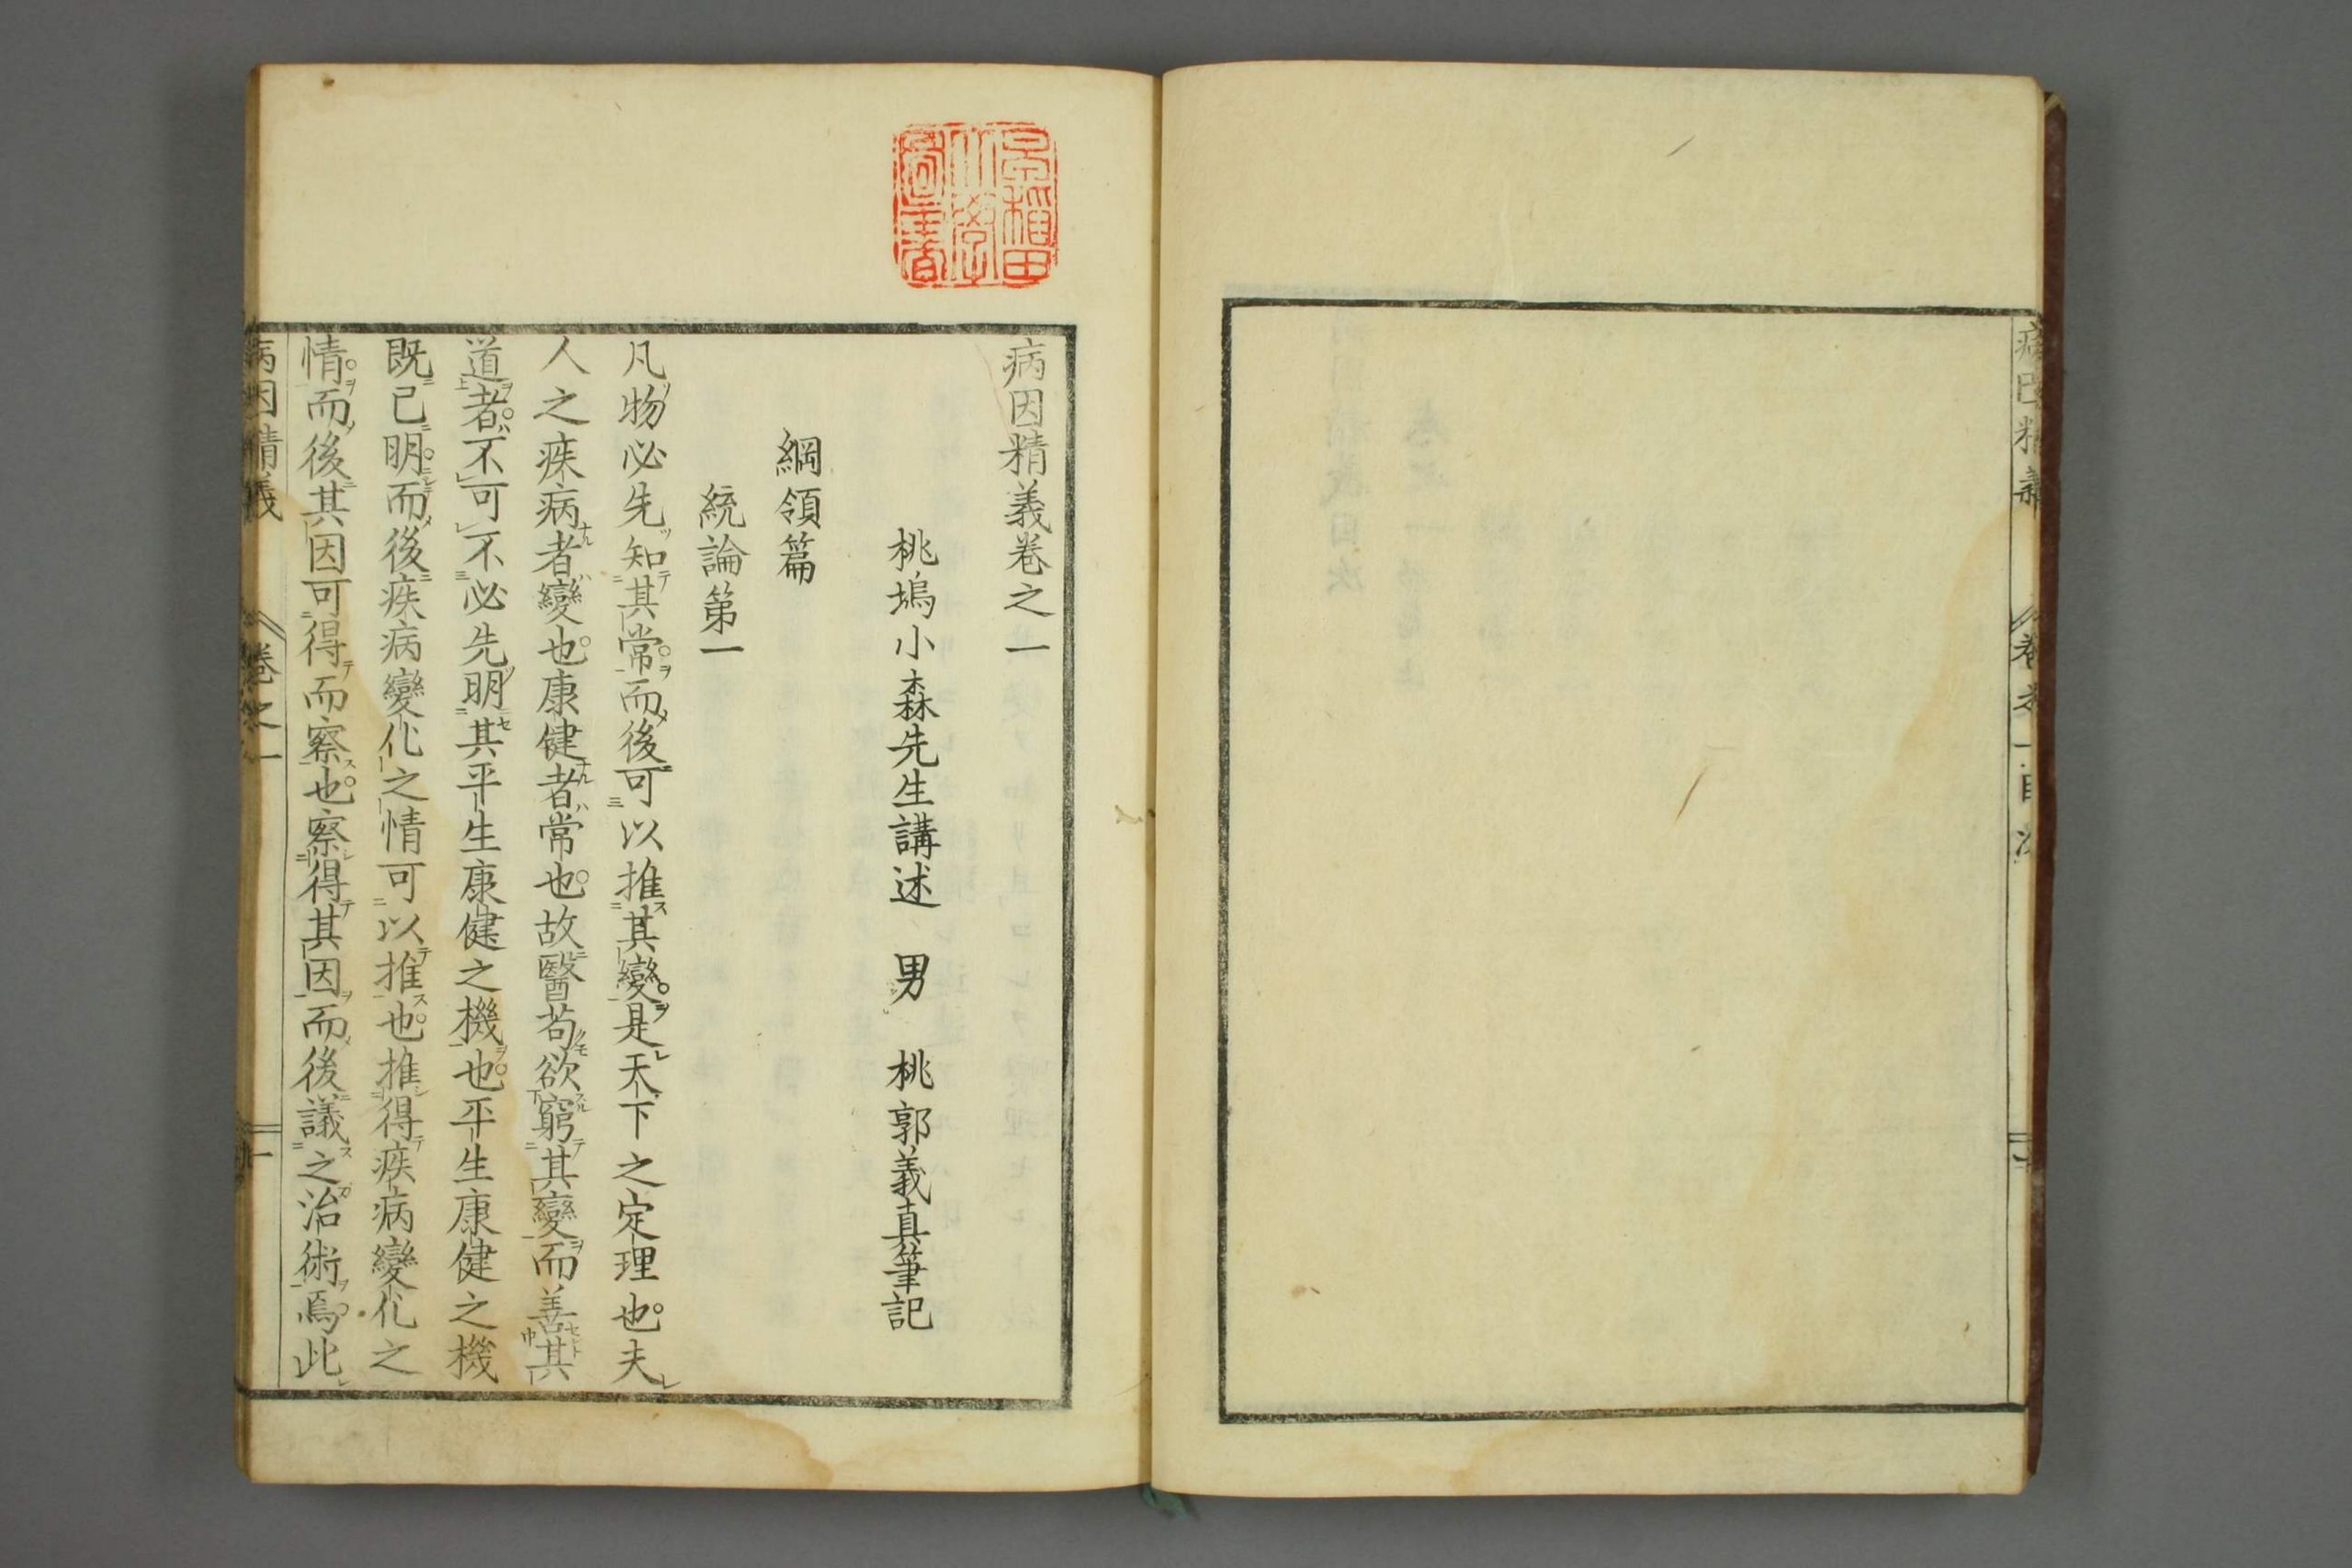 病因精義卷之一
桃塢小森先生講述　男　桃郭義真筆記
綱領篇
統論第一
凡物必先知其常而後可以推其變是天下之定理也夫
人之疾病者變也康健者常也故醫苟欲窮其變而善其
道者不可不必先明其平生康健之機也平生康健之機
既已明而後疾病變化之情可以推也推得疾病變化之
情而後其因可得而察也察得其因而後議之治術焉此
病因精義　卷之一　一
早稲田大學圖書